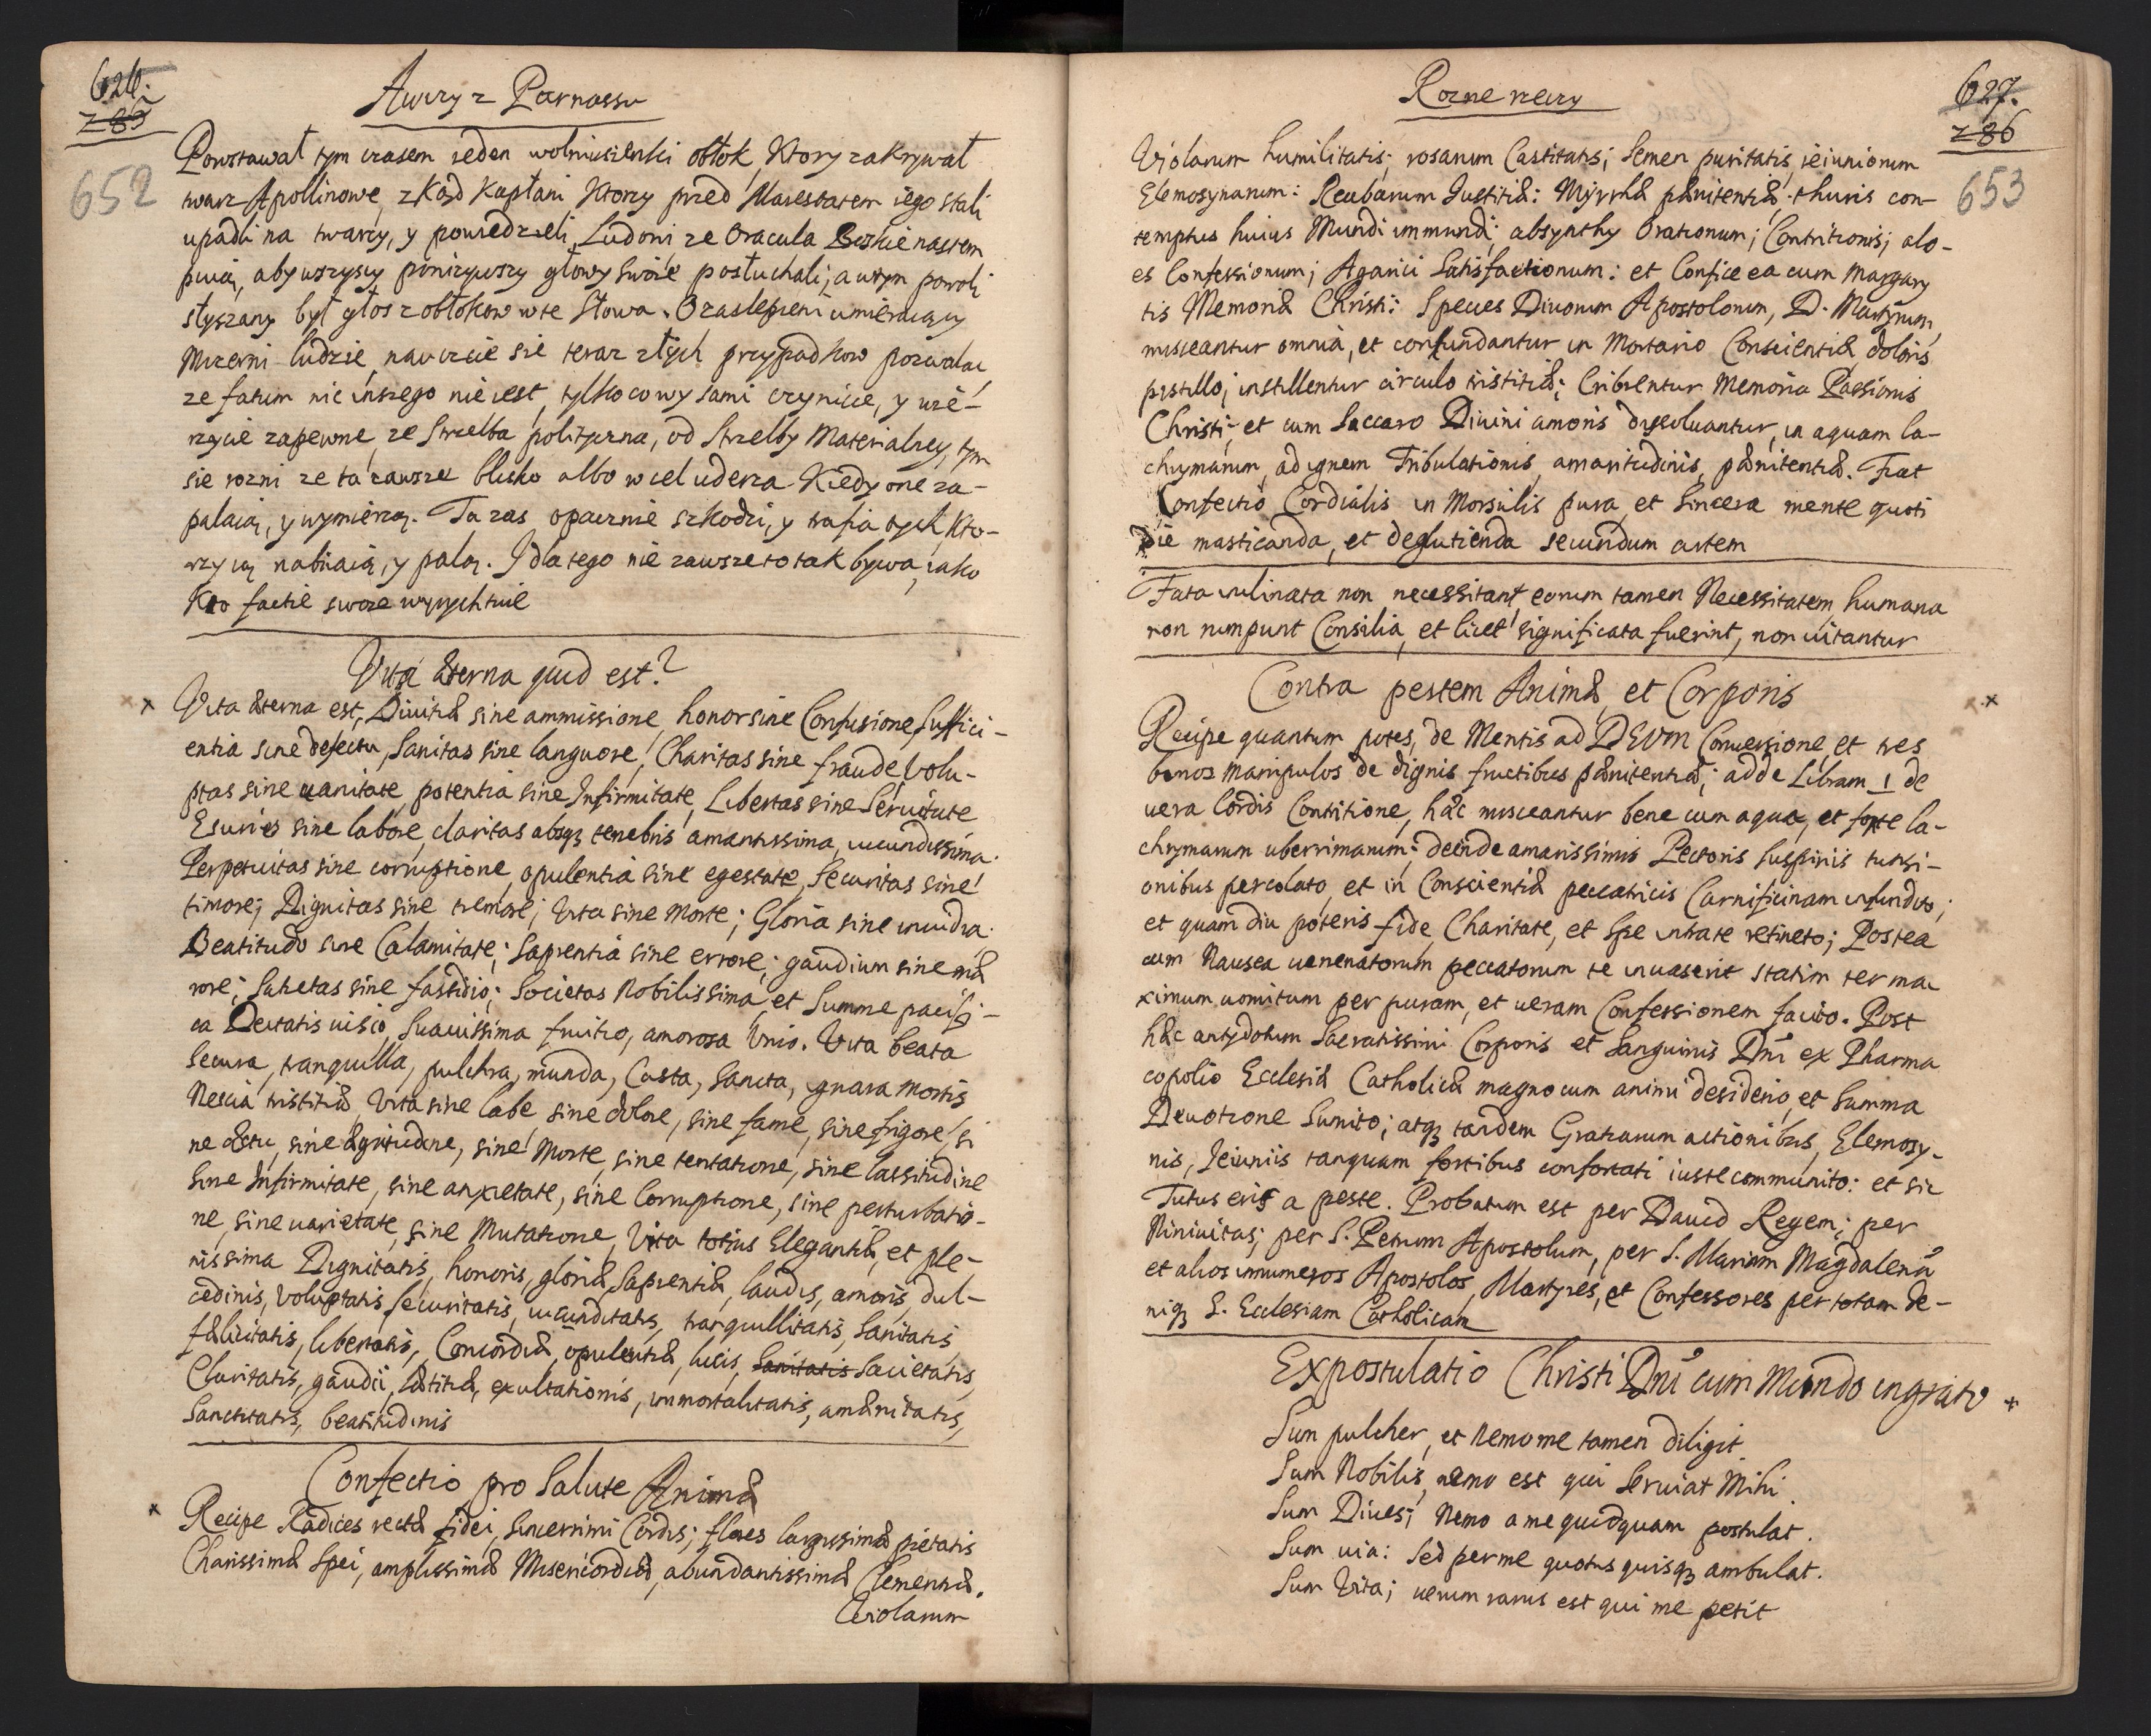 626.
285
652
Awizy z Parnassu
Powstawał tym czasem ieden wolniusienki obłok, Ktory zakrywał
twarz Apollinowę, zkąd Kapłani Ktorzy przed Maiestatem iego stali
upadli na twarzy, y powiedzieli Ludowi ze Oracula Boskie nastem
puią, aby wszyscy poniżywszy głowy swoie posłuchali; a wtym powoli
słyszany był głos z obłokow wte słowa. O zaslepieni umieraiący
Mizerni ludzie, nauczcie się teraz złych przypadkow pozwalac
ze fatum nic inszego nie iest, tylko co wy sami czynicie, y wie-
rzycie zapewne, ze Strzelba polityczna, od Strzelby Materialney, tym
sie rozni ze ta zawsze blisko albo w cel uderza Kiedy one za-
palaią, y wymierzą. Ta zas opacznie szkodzi, y trafia tych, Kto-
rzy ią nabiiaią, y palą. I dla tego nie zawsze to tak bywa, iako
Kto factie swoie wyrychtuie
Vita æterna quid est?
x Vita æterna est, Diuitiæ sine ammissione, honor sine Confusione, Suffici-
entia sine defectu, Sanitas sine languore, Charitas sine fraude, Volu-
ptas sine uanitate, potentia sine Infirmitate, Libertas sine Seruitute
Esuries sine labore, claritas absq3 tenebris amantissima, iucundissima.
Perpetuitas sine corruptione, opulentia sine egestate, Securitas sine
timore; Dignitas sine tremore; Vita sine Morte; Gloria sine inuidia.
Beatitudo sine Calamitate; Sapientia sine errore; gaudium sine mæ
rore; Satietas sine fastidio; Societas Nobilissima, et Summe pacifi-
ca Deitatis uisio, Suauissima fruitio, amorosa Unio. Vita beata
Secura, tranquilla, pulchra, munda, Casta, Sancta, ignara mortis
Nescia tristitiæ, Vita sine labe, sine dolore, sine fame, sine frigore, si
ne æstu, sine ægritudine, sine Morte, sine tentatione, sine lassitudine
Sine Infirmitate, sine anxietate, sine Corruptione, sine perturbatio-
ne, sine uarietate, sine Mutatione, Vita totius Elegantiæ, et ple-
nissima Dignitatis, honoris, gloriæ, Sapientiæ, laudis, amoris, dul-
cedinis, Voluptatis, securitatis, iucunditatis, tranquillitatis, Sanitatis,
fælicitatis, libertatis, Concordiæ, opulentiæ, lucis, Sanitatis Societatis,
Claritatis, gaudii, lætitiæ, exultationis, immortalitatis, amænitatis,
Sanctitatis, beatitudinis
Confectio pro Salute Animæ
x Recipe Radices rectæ fidei, Sincerrimi Cordis; flores largissimæ pietatis
Charissimæ Spei, amplissimæ Misericordiæ, abundantissimæ Clementiæ.
Violarum
Rozne rzeczy
627.
286
653
Violarum humilitatis; rosarum Castitatis; Semen puritatis, ieiuniorum
Elemosynarum: Reubarum Iustitiæ: Myrrhæ pænitentiæ: thuris con-
temptus huius Mundi immundi; absynthy Orationum; Contritionis; alo-
es Confessionum; Agarici Satisfactionum: et Confice ea cum margary
tis Memoriæ Christi: Species Diuorum Apostolorum, D. Martyrum,
misceantur omnia, et confundantur in Mortario Conscientiæ doloris
pistillo; instillentur circulo tristitiæ; Cribrentur Memoria Passionis
Christi; et cum Saccaro Diuini amoris dissoluantur, in aquam la-
chrymarum, ad ignem Tribulationis, amaritudinis, pænitentiæ. Fiat
Confectio Cordialis in Morsulis pura, et Sincera mente quoti
die masticanda, et deglutienda secundum artem
Fata inclinata non necessitant, eorum tamen Necessitatem humana
non rumpunt Consilia, et licet significata fuerint, non uitantur
Contra pestem Animæ, et Corporis x
Recipe quantum potes, de Mentis ad DEVM Conuersione, et tres
bonos manipulos de dignis fructibus pænitentiæ; adde Libram 1 de
uera Cordis Contritione, hæc misceantur bene cum aqua, et forte la-
chrymarum uberrimarum: deinde amarissimis Pectoris Suspiriis tunsi-
onibus percolato, et in Conscientiæ peccatricis Carnificinam infundito;
et quamdiu poteris fide, Charitate, et Spe intrate retineto; Postea
cum Nausea uenenatorum peccatorum te inuaserit statim ter ma
ximum uomitum per puram, et ueram Confessionem facito. Post
hæc antydotum Sacratissimi Corporis et Sanguinis Dni ex Pharma
copolio Ecclesiæ Catholicæ magno cum animi desiderio, et Summa
Deuotione Sumito; atq3 tandem Gratiarum actionibus, Elemosy-
nis, Ieiuniis tanquam fortibus confortati iuste communito: et sic
Tutus eris a peste. Probatum est per Dauid Regem; per
Niniuitas; per S. Petrum Apostolum, per S. Mariam Magdalenã
et alios innumeros Apostolos, Martyres, et Confessores per totam de-
niq3 S. Ecclesiam Catholicam
Expostulatio Christi Dni cum Mundo ingrato x
Sum pulcher, et Nemo me tamen diligit
Sum Nobilis, nemo est qui Seruiat Mihi.
Sum Diues; Nemo a me quidquam postulat.
Sum uia: Sed per me quotus quisq3 ambulat.
Sum Vita; uerum rarus est qui me petit